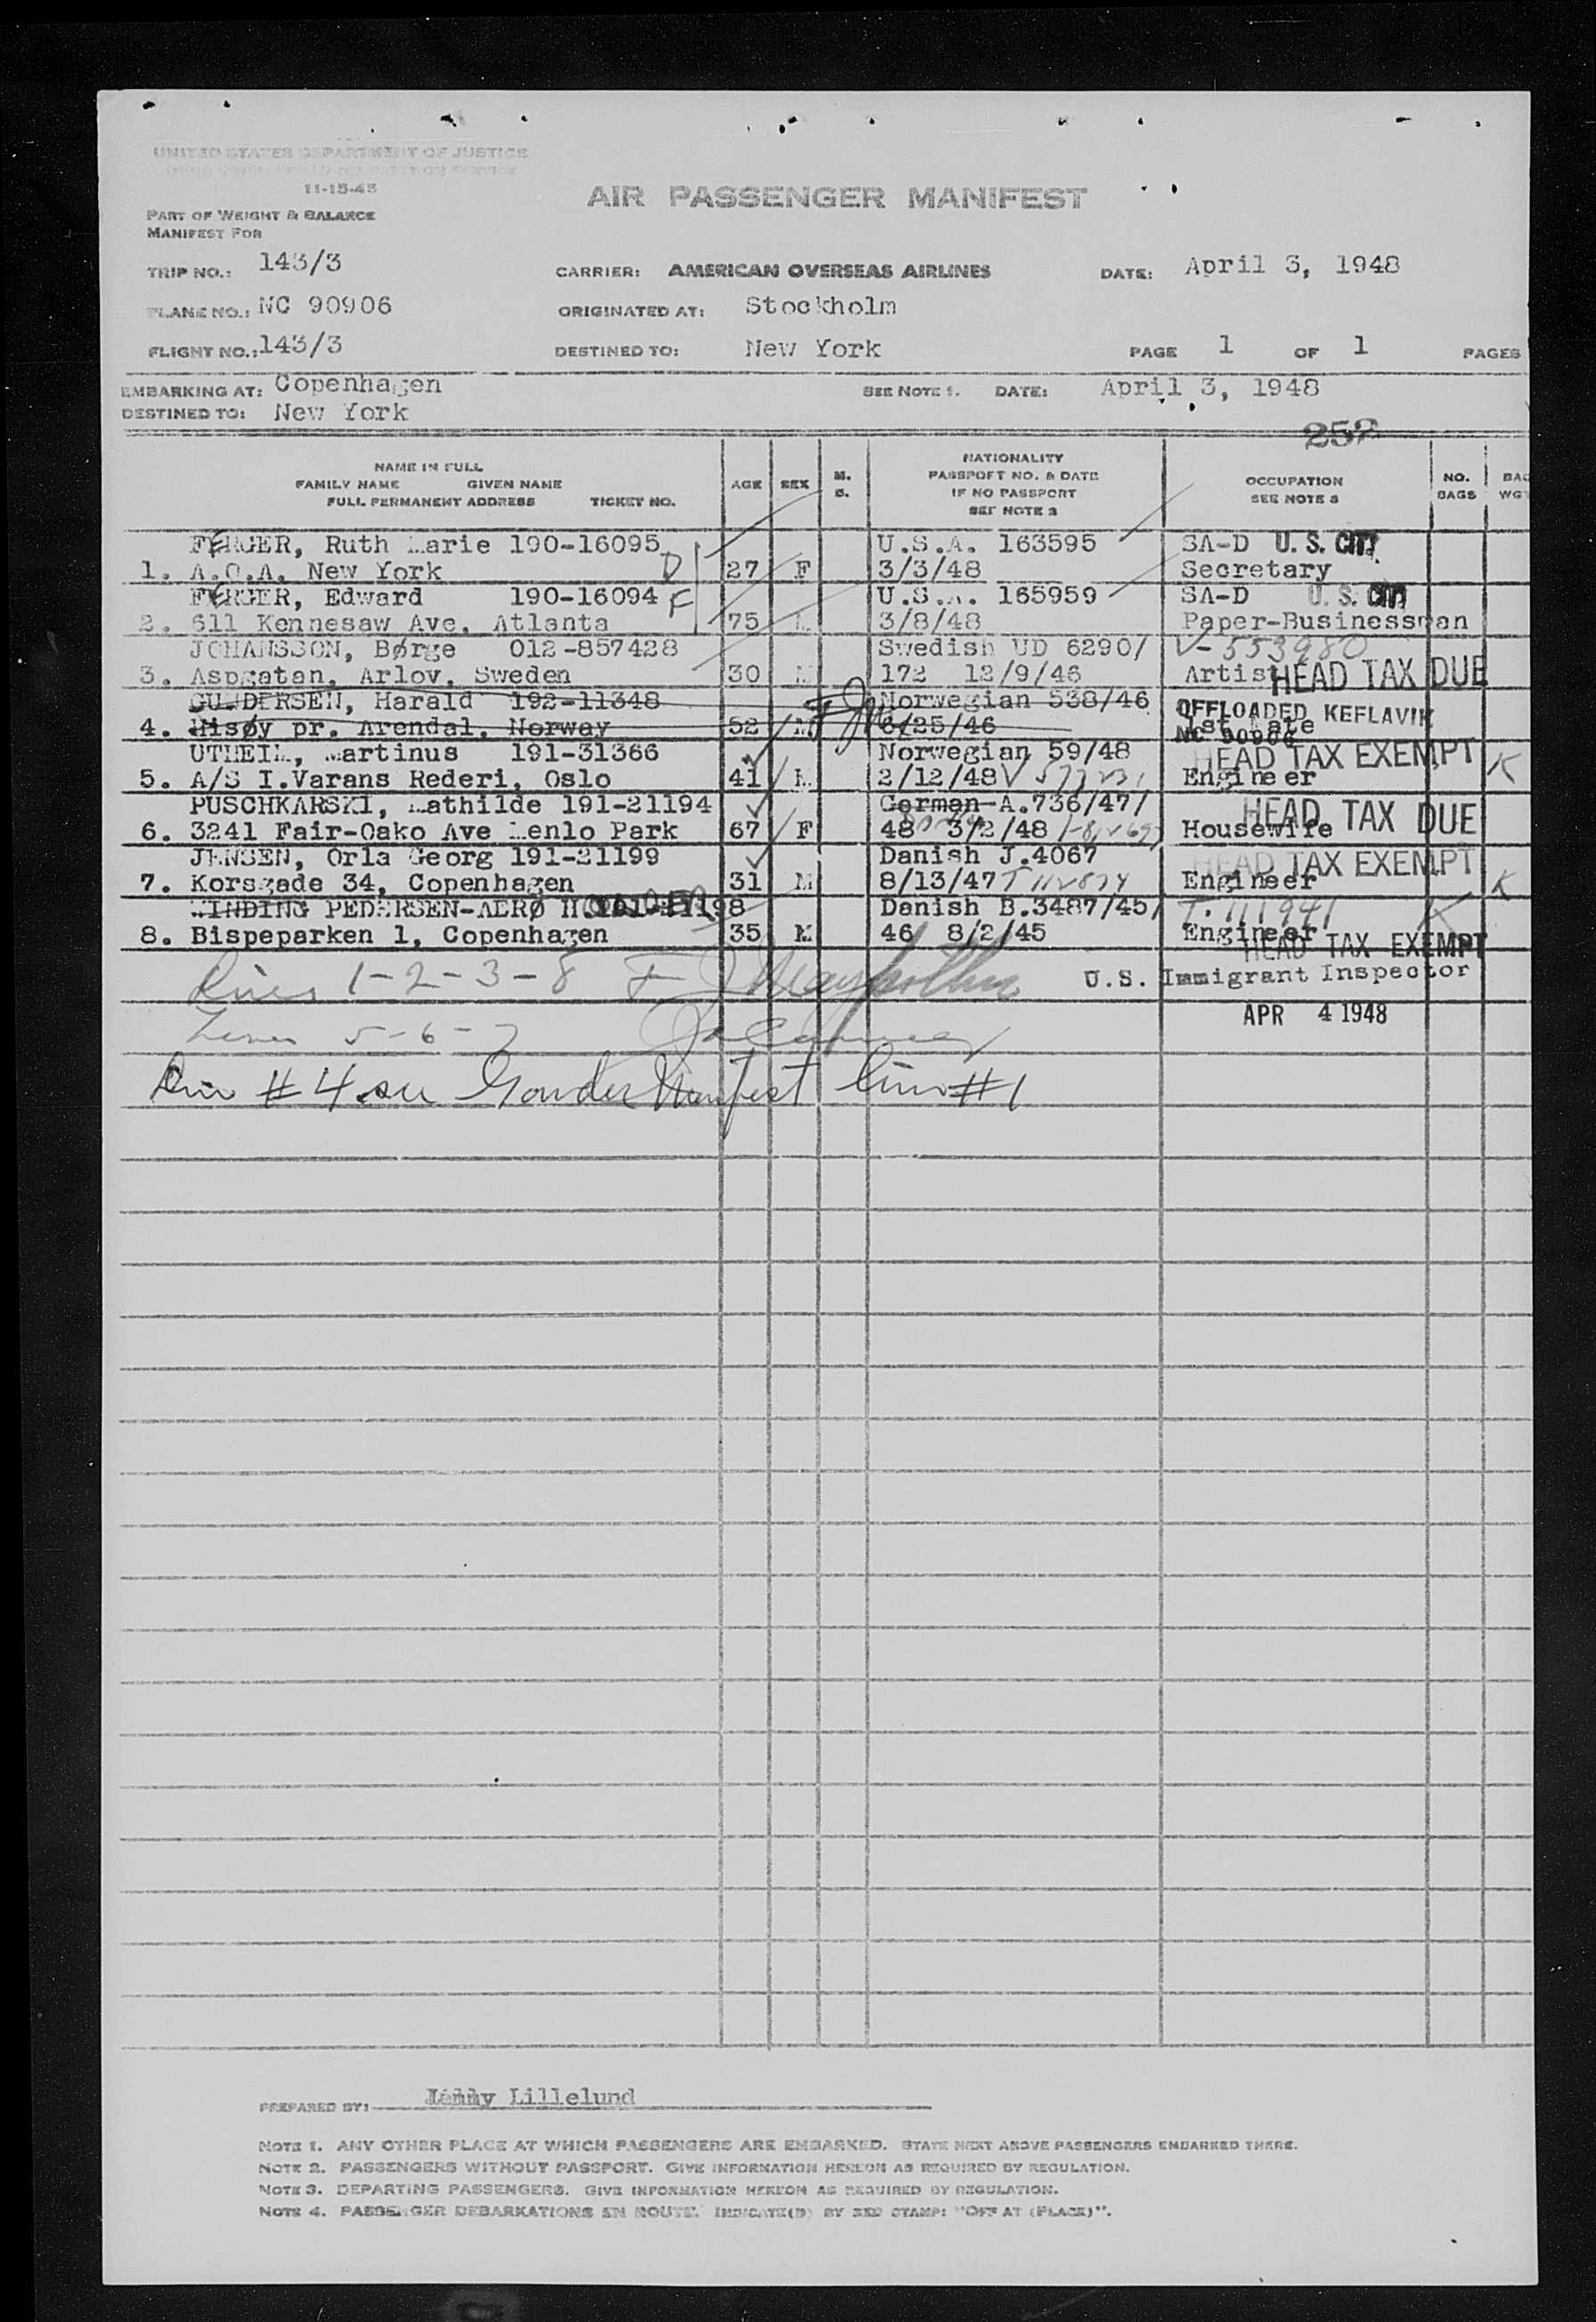 UNITED STATES DEPARTMENT OF JUSTICE
11-15-45
AIR PASSENGER MANIFEST
PART OF WEIGHT & BALANCE
MANIFEST FOR
TRIP NO.: 143/3 CARRIER: AMERICAN OVERSEAS AIRLINES DATE: April 3, 1948
PLANE NO.: NC 90906 ORIGINATED AT: Stockholm
FLIGHT NO.: 143/3 DESTINED TO: New York PAGE 1 OF 1 PAGES
EMBARKING AT: Copenhagen SEE NOTE 1. DATE: April 3, 1948
DESTINED TO: New York
252
NAME IN FULL
FAMILY NAME GIVEN NAME
FULL PERMANENT ADDRESS TICKET NO.
AGE SEX M. S.
NATIONALITY
PASSPORT NO. & DATE
IF NO PASSPORT
SEE NOTE 2
OCCUPATION
SEE NOTE 3
NO. BAGS
BAG WGT
FERGER, Ruth Marie 190-16095 D U.S.A. 163595 SA-D U. S. CIT
1. A.O.A. New York 27 F 3/3/48 Secretary
FERGER, Edward 190-16094 F U.S.A. 165959 SA-D U. S. CIT
2. 611 Kennesaw Ave. Atlanta 75 M 3/8/48 Paper-Businessman
JOHANSSON, Børge 012-857428 Swedish UD 6290/ V-553980
3. Aspgatan, Arlov, Sweden 30 M 172 12/9/46 Artist HEAD TAX DUE
GUNDERSEN, Harald 192-11348 Norwegian 538/46 OFFLOADED KEFLAVIK
4. Hisøy pr. Arendal. Norway 52 M 6/25/46 1st Mate NC 90906
UTHEIM, Martinus 191-31366 Norwegian 59/48 HEAD TAX EXEMPT K
5. A/S I.Varans Rederi, Oslo 41 M 2/12/48 Engineer
PUSCHKARSKI, Mathilde 191-21194 German-A.736/47/ HEAD TAX DUE
6. 3241 Fair-Oako Ave Menlo Park 67 F 48 3/2/48 Housewife
JENSEN, Orla Georg 191-21199 Danish J.4067 HEAD TAX EXEMPT
7. Korsgade 34, Copenhagen 31 M 8/13/47 Engineer K
WINDING PEDERSEN-AERØ Danish B.3487/45/ T. 111941 K
8. Bispeparken 1, Copenhagen 35 M 46 8/2/45 Engineer HEAD TAX EXEMPT
Lines 1-2-3-8 U.S. Immigrant Inspector
Lines 5-6-7 APR 4 1948
Line # 4. see Gander Manifest line #1
PREPARED BY: Jenny Lillelund
NOTE 1. ANY OTHER PLACE AT WHICH PASSENGERS ARE EMBARKED. STATE NEXT ABOVE PASSENGERS EMBARKED THERE.
NOTE 2. PASSENGERS WITHOUT PASSPORT. GIVE INFORMATION HEREON AS REQUIRED BY REGULATION.
NOTE 3. DEPARTING PASSENGERS. GIVE INFORMATION HEREON AS REQUIRED BY REGULATION.
NOTE 4. PASSENGER DEBARKATIONS EN ROUTE. INDICATE(D) BY RED STAMP: "OFF AT (PLACE)".